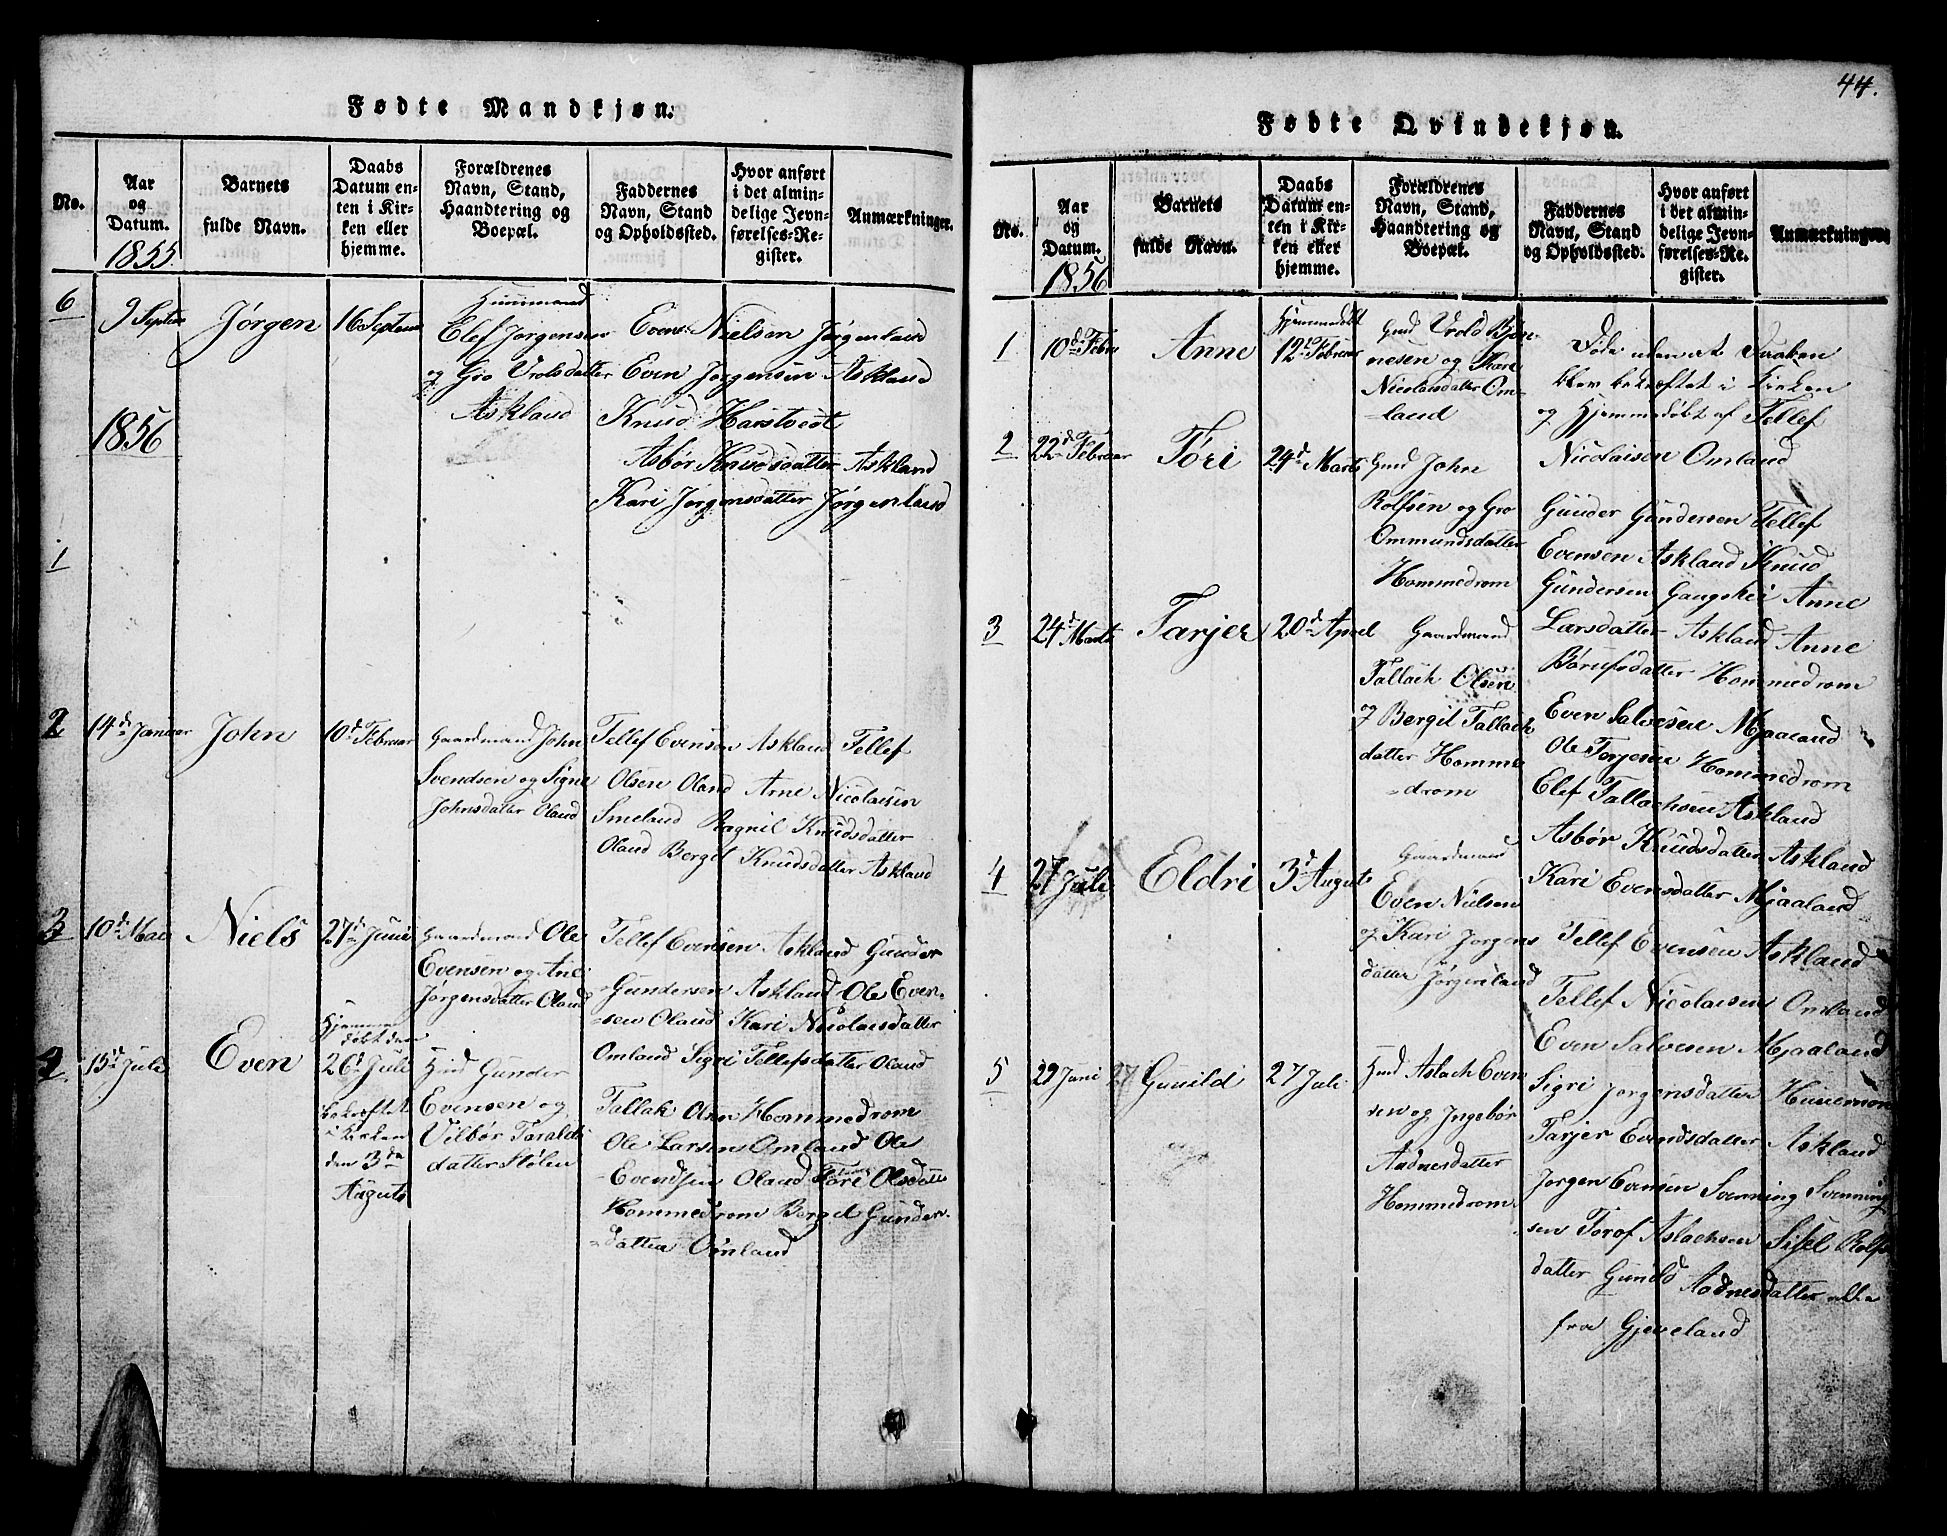 44.
Fødte Mandkjøn.
No.
Aar
og
Datum.
1855
Barnets
fulde Navn.
Daabs
Datum en-
ten i Kir-
ken eller
hjemme.
Forældrenes
Navn, Stand,
Haandtering og
Boepæl.
Faddernes
Navn, Stand
og Opholdssted.
Hvor anført
i det almin-
delige Jevn-
førelses-Re-
gister.
Anmærkninger.
6
9 Septem
Jørgen
16 Septem
Huusmand
Elef Jørgensen
og Gro Vrolsdatter
Askland
Even Nielsen Jørgenland
Even Jørgensen Askland
Knud Harstvedt
Asbør Knudsdatter Askland
Kari Jørgensdatter Jørgenland
1856
1
2
14d Januar
John
10d Februar
Gaardmand John
Svendsen og Signe
Johnsdatter Oland
Tellef Evensen Askland Tellef
Olsen Oland Arne Nicolaisen
Smeland Ragnil Knudsdatter
Oland Bergit Knudsdatter Askland
3
10d Mai
Niels
27d Juni
Gaardmand Ole
Evensen og Ane
Jørgensdatter Oland
Tellef Evensen Askland Gunder
Gundersen Askland Ole Even-
sen Oland Kari Nicolaisdatter
Omland Sigri Tellefsdatter Oland
4
15d Juli
Even
Hjemme
døbt den
26d Juli
bekræftet
i kirken
den 3da
Augusts
Hmd Gunder
Evensen og
Vilbør Taralds
datter Stølen
Tallak Olsen Hommedrom
Ole Larsen Omland Ole
Evendsen Oland Tøri Olsdatter
Hommedrom Bergit Gunders-
datter Omland
Fødte Qvindekjøn.
No.
Aar
og
Datum.
1856
Barnets
fulde Navn.
Daabs
Datum en-
ten i Kir-
ken eller
hjemme.
Forældrenes
Navn, Stand,
Haandtering og
Boepæl.
Faddernes
Navn, Stand
og Opholdssted.
Hvor anført
i det almin-
delige Jevn-
førelses-Re-
gister.
Anmærkninger
1
10d Febru
Anne
Hjemmedøbt
12d Februar
Gmd Vrold Bjøn
nesen og Kari
Nicolaisdatter Om-
land
Døde uden at Daaben
blev bekræftet i Kirken
og Hjemmedøbt af Tellef
Nicolaisen Omland
2
22d Februar
Tøri
24d Marts
Gmd John
Rolfsen og Gro
Ommundsdatter
Hommedrom
Gunder Gundersen Tellef
Evensen Askland Knud
Gundersen Gaugskei Anne
Larsdatter Askland Anne
Børufsdatter Hommedrom
3
24d Marts
Tarjer
20d April
Gaardmand
Tallach Olsen
og Bergit Tallach
datter Homme
drom
Even Salvesen Mjaaland
Ole Torjesen Hommedrom
Elef Tallachsen Askland
Asbør Knudsdatter Askland
Kari Evensdatter Mjaaland
4
27 Juli
Eldri
3d Augusts
Gaardmand
Even Nielsen
og Kari Jorgens
datter Jørgenland
Tellef Evensen Askland
Tellef Nicolaisen Omland
Even Salvesen Mjaaland
Sigri Jorgensdatter Huusmoen
Tarjer Evendsdatter Askland
5
29 Juni
27
Gunild
27 Juli
Hmd Aslach Even
sen og Ingebør
Aadnesdatter
Hommedrom
Jorgen Evensen Svenning Svenning
sen Torof Aslachsen Sissel Rolfs
datter Gunild Aadnesdatter alle
fra Gjeveland